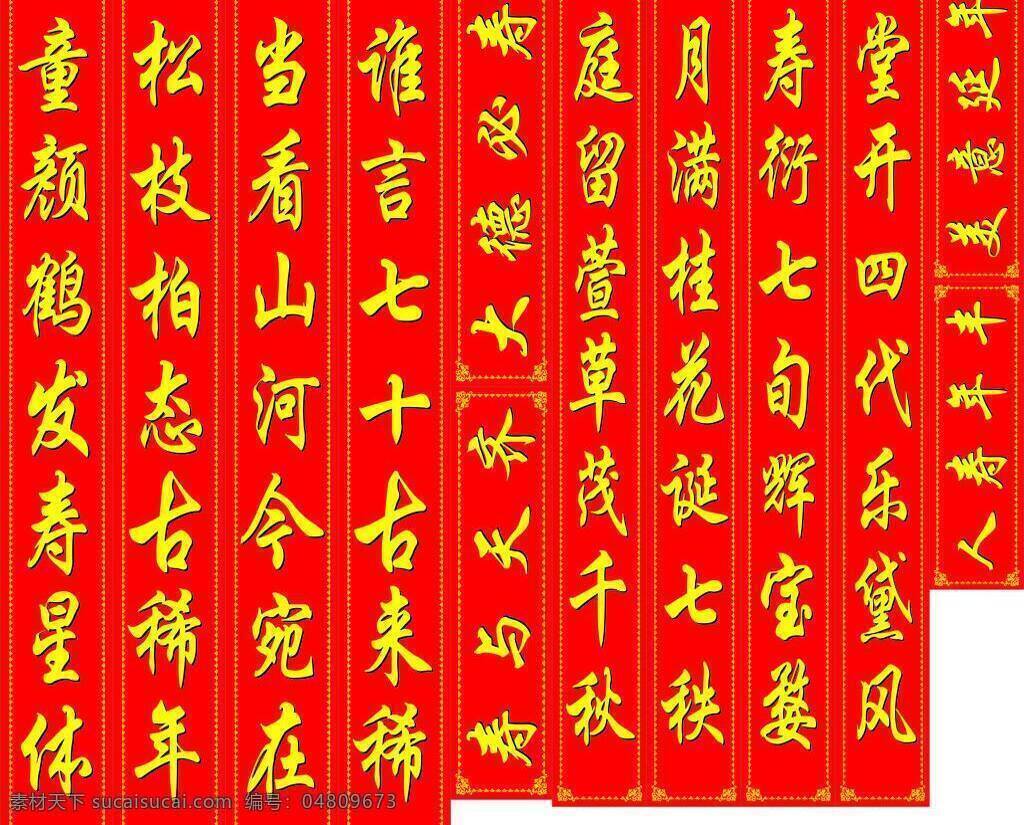 童颜鹤发寿星体
松枝柏态古稀年
当看山河今宛在
谁言七十古来稀
大德必寿
寿与天齐
庭留萱草茂千秋
月满桂花诞七秩
寿衍七旬辉宝婺
堂开四代乐黛风
美意延年
人寿年丰
素材天下 sucaisucai.com 编号：04809673